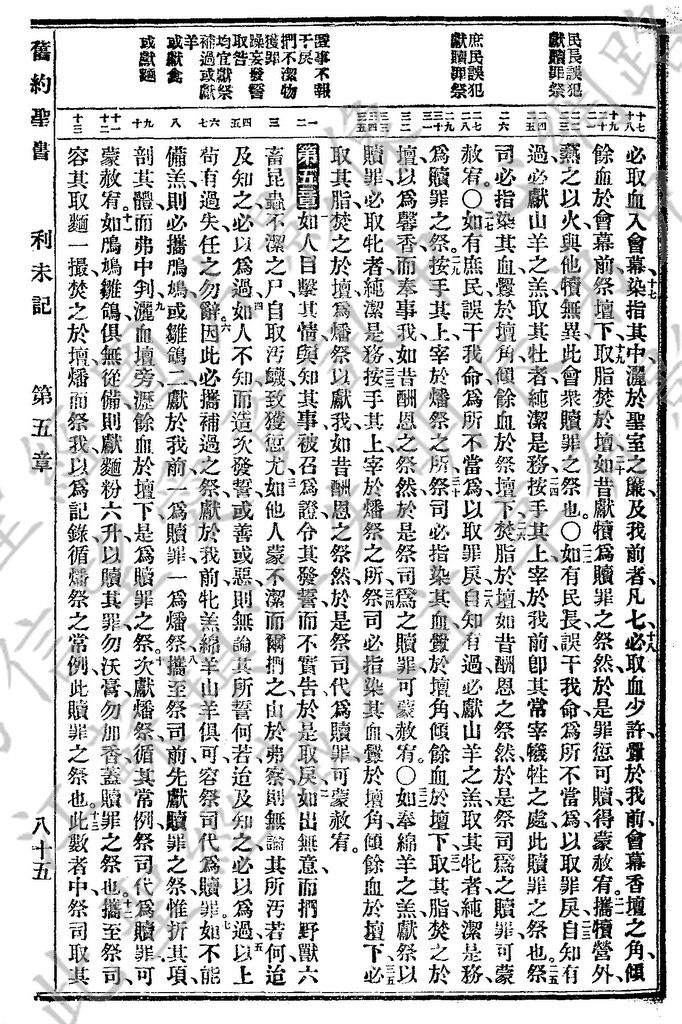 必取血入會幕染指其中灑於聖室之簾及我前者凡七必取血少許釁於我前會幕香壇之角傾
餘血於會幕前祭壇下取脂焚於壇如昔獻犢爲贖罪之祭然於是罪愆可贖得蒙赦宥攜犢營外
爇之以火與他犢無異此會衆贖罪之祭也〇如有民長誤干我命爲所不當爲以取罪戾自知有
過必獻山羊之羔取其牡者純潔是務按手其上宰於我前卽其常宰犧牲之處此贖罪之祭也祭
司必指染其血釁於壇角傾餘血於祭壇下焚脂於壇如昔酬恩之祭然於是祭司爲之贖罪可蒙
赦宥〇如有庶民誤干我命爲所不當爲以取罪戾自知有過必獻山羊之羔取其牝者純潔是務
爲贖罪之祭按手其上宰於燔祭之所祭司必指染其血釁於壇角傾餘血於壇下取其脂焚之於
壇以爲馨香而奉事我如昔酬恩之祭然於是祭司爲之贖罪可蒙赦宥〇如奉綿羊之羔獻祭以
贖罪必取牝者純潔是務按手其上宰於燔祭之所祭司必指染其血釁於壇角傾餘血於壇下必
取其脂焚之於壇爲燔祭以獻我如昔酬恩之祭然於是祭司代爲贖罪可蒙赦宥
第五章如人目擊其情與知其事被召爲證令其發誓而不實告於是取戾如出無意而捫野獸六
畜昆蟲不潔之尸自取汚衊致獲愆尤如他人蒙不潔而爾捫之由於弗察則無論其所汚若何迨
及知之必以爲過如人不知而造次發誓或善或惡則無論其所誓何若迨及知之必以爲過以上
苟有過失任之勿辭因此必攜補過之祭獻於我前牝羔綿羊山羊俱可容祭司代爲贖罪如不能
備羔則必攜鳲鳩或雛鴿二獻於我前一爲贖罪一爲燔祭攜至祭司前先獻贖罪之祭惟折其項
剖其體而弗中判灑血壇旁瀝餘血於壇下是爲贖罪之祭次獻燔祭循其常例祭司代爲贖罪可
蒙赦宥如鳲鳩雛鴿俱無從備則獻麵粉六升以贖其罪勿沃膏勿加香蓋贖罪之祭也攜至祭司
容其取麵一撮焚之於壇燔而祭我以爲記錄循燔祭之常例此贖罪之祭也此數者中祭司取其
民長誤犯
獻贖罪祭
庶民誤犯
獻贖罪祭
證事不報
干戾
捫不潔物
獲罪
躁妄發誓
取咎
均宜獻祭
補過或獻
羊
或獻禽
或獻麵
舊約聖書
利未記
第五章
八十五